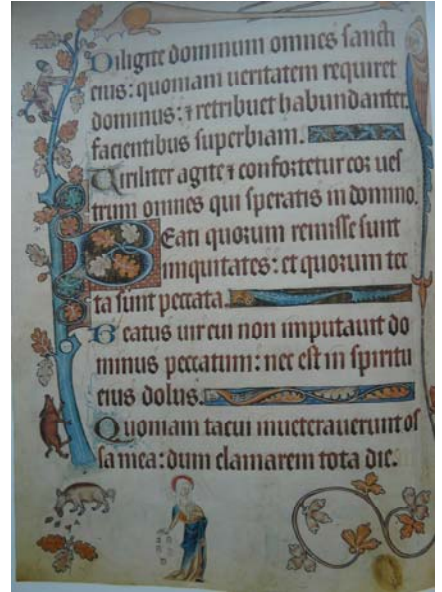 Diligite dominum omnes sancti
eius: quoniam ueritatem requiret
dominus: ⁊ retribuet habundanter
facientibus superbiam.
Uiriliter agite ⁊ confortetur cor ues
trum omnes qui speratis in domino.
Beati quorum remisse sunt
iniquitates: et quorum tec
ta sunt peccata.
Beatus uir cui non imputauit do
minus peccatum: nec est in spiritu
eius dolus.
Quoniam tacui inueterauerunt os
sa mea: dum clamarem tota die.